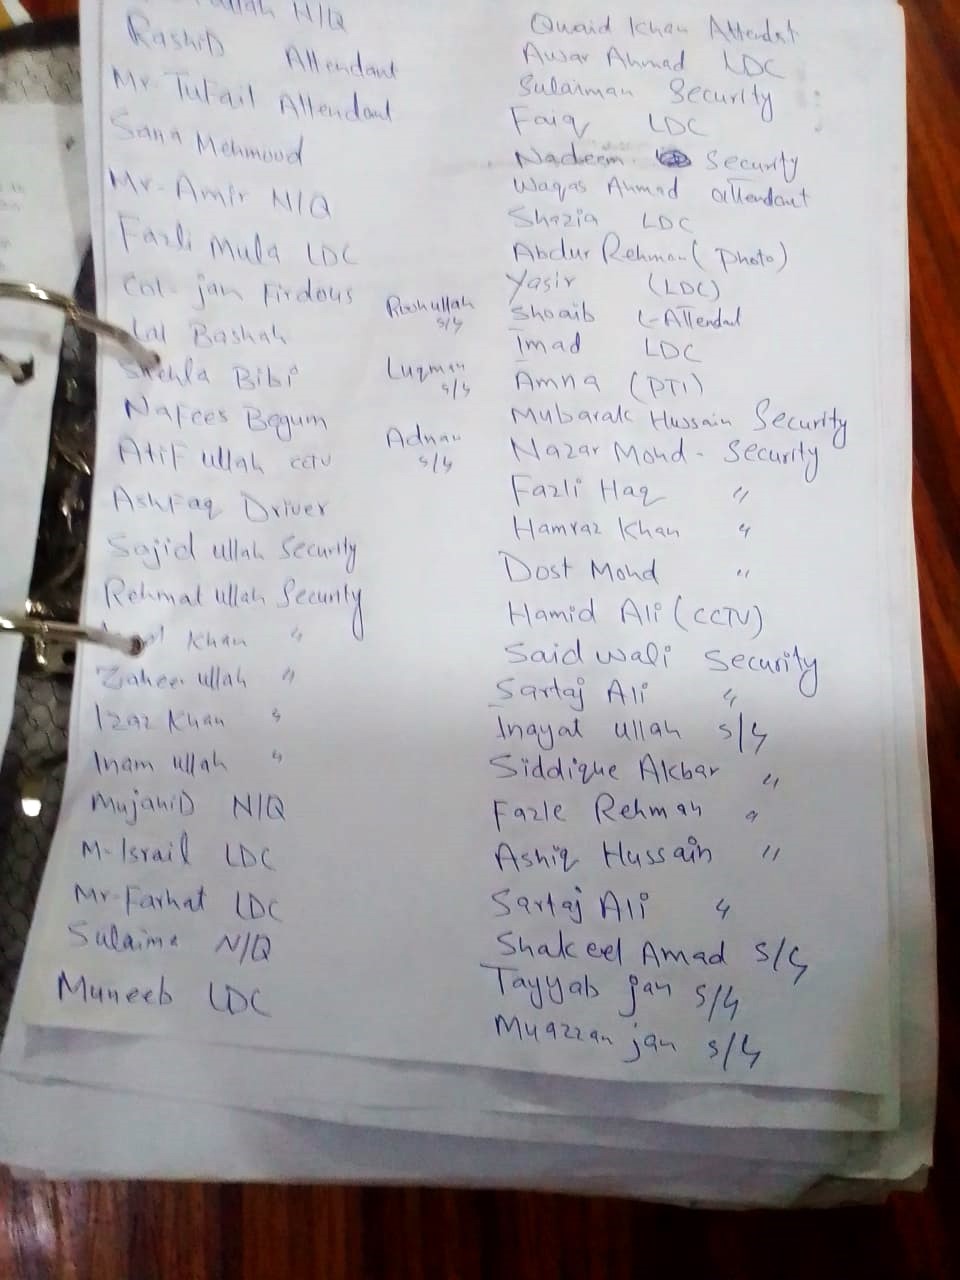 ullah N/Q
RashiD Attendant
Mr Tufail Attendant
Sana Mehmood
Mr. Amir N/Q
Fazli Mula LDC
Gal jan Firdous
Lal Bashah
Shehla Bibi
Nafees Begum
Atif ullah CCTV
Ashfaq Driver
Sajid ullah Security
Rehmat ullah Security
Khan "
Zaheer ullah "
Izaz Khan "
Inam ullah "
MujahiD N/Q
M. Israil LDC
Mr Farhat LDC
Sulaima N/Q
Muneeb LDC
Roohullah
S/G
Luqman
S/G
Adnan
S/G
Quaid Khan Attendat
Awar Ahmad LDC
Sulaiman Security
Faiq LDC
Nadeem Security
Waqas Ahmad attendant
Shazia LDC
Abdur Rehman (photo)
Yasir (LDC)
Shoaib L-Attendat
Imad LDC
Amna (PTI)
Mubarak Hussain Security
Nazar Mohd - Security
Fazli Haq "
Hamraz Khan "
Dost Mohd "
Hamid Ali (CCTV)
Said wali Security
Sartaj Ali "
Inayat ullah S/G
Siddique Akbar "
Fazle Rehman "
Ashiq Hussain "
Sartaj Ali "
Shakeel Amad S/G
Tayyab jan S/G
Muazzan jan S/G